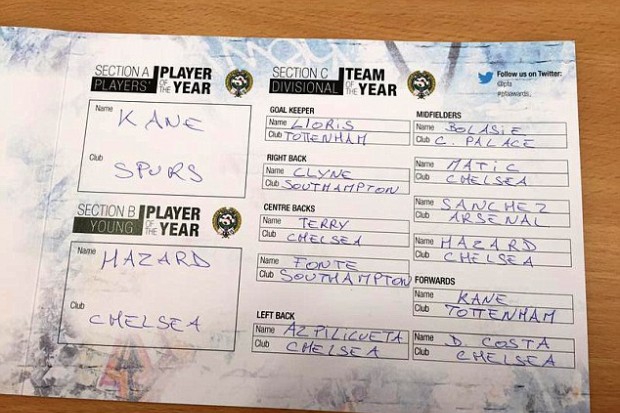 SECTION A PLAYERS' PLAYER OF THE YEAR
Name KANE
Club SPURS
SECTION B YOUNG PLAYER OF THE YEAR
Name HAZARD
Club CHELSEA
SECTION C DIVISIONAL TEAM OF THE YEAR
GOAL KEEPER
Name LLORIS
Club TOTTENHAM
RIGHT BACK
Name CLYNE
Club SOUTHAMPTON
CENTRE BACKS
Name TERRY
Club CHELSEA
Name FONTE
Club SOUTHAMPTON
LEFT BACK
Name AZPILIGUETA
Club CHELSEA
Follow us on Twitter:
@pfa
#pfaawards
MIDFIELDERS
Name BOLASIE
Club C. PALACE
Name MATIC
Club CHELSEA
Name SANCHEZ
Club ARSENAL
Name HAZARD
Club CHELSEA
FORWARDS
Name KANE
Club TOTTENHAM
Name D. COSTA
Club CHELSEA